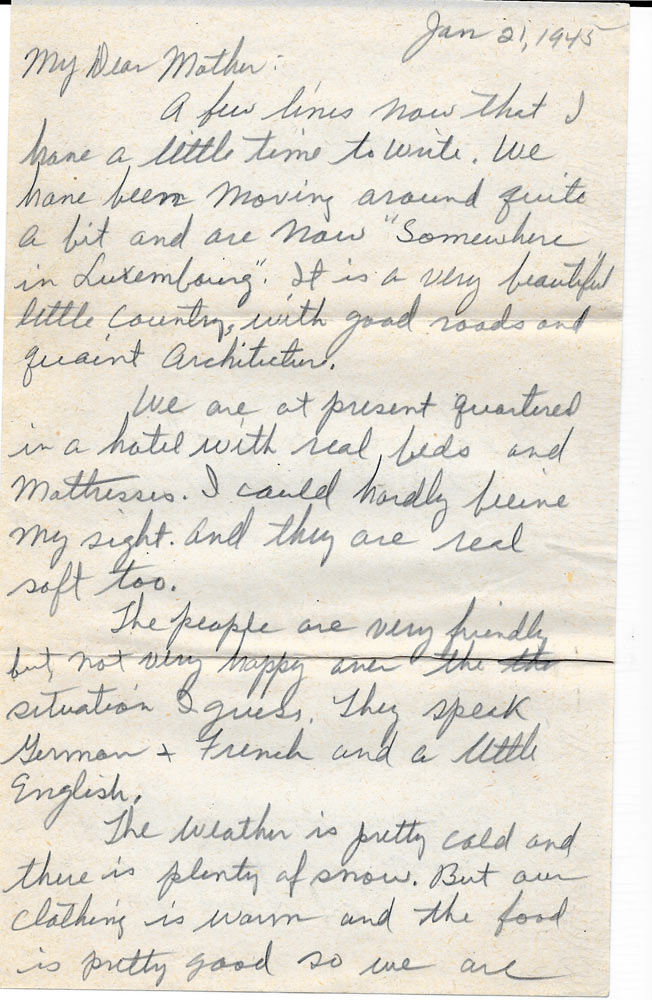 Jan 21, 1945
My Dear Mother:
A few lines now that I
have a little time to write. We
have been moving around quite
a bit and are now "Somewhere
in Luxembourg". It is a very beautiful
little country, with good roads and
quaint Architecture.
We are at present quartered
in a hotel with real beds and
mattresses. I could hardly beeive
my sight. And they are real
soft too.
The people are very friendly
but, not very happy over the the
situation I guess. They speak
German + French and a little
English.
The weather is pretty cold and
there is plenty of snow. But our
clothing is warm and the food
is pretty good so we are